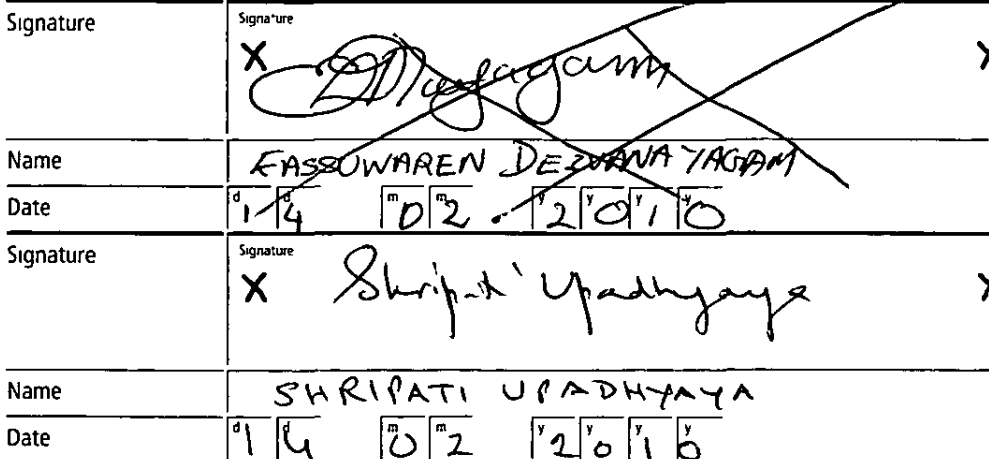 Signature Signature
X X
Name EASSUWAREN DEIVANAYAGAM
Date d1 d4 m0 m2 y2 y0 y1 y0
Signature Signature
X Shripati Upadhyaya X
Name SHRIPATI UPADHYAYA
Date d1 d4 m0 m2 y2 y0 y1 y0